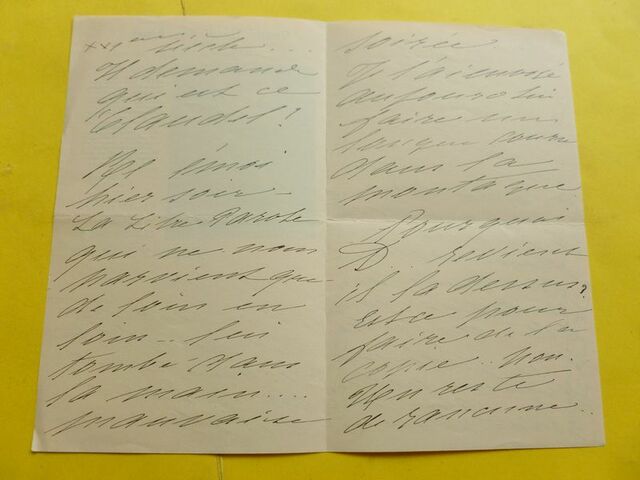 XXIème siècle....
Il demande
qui est ce
Claudel!
hier soir -
La Libre Parole
qui ne nous
parvient que
de loin en
loin.. lui
tombe dans
la main....
mauvaise
soirée.
Je l'ai envoyé
aujourd'hui
faire un
longue course
dans la
montagne
Pourquoi
D... revient
il la dessus?
Est ce pour
faire de la
copie.. non.
Un reste
de rancune..